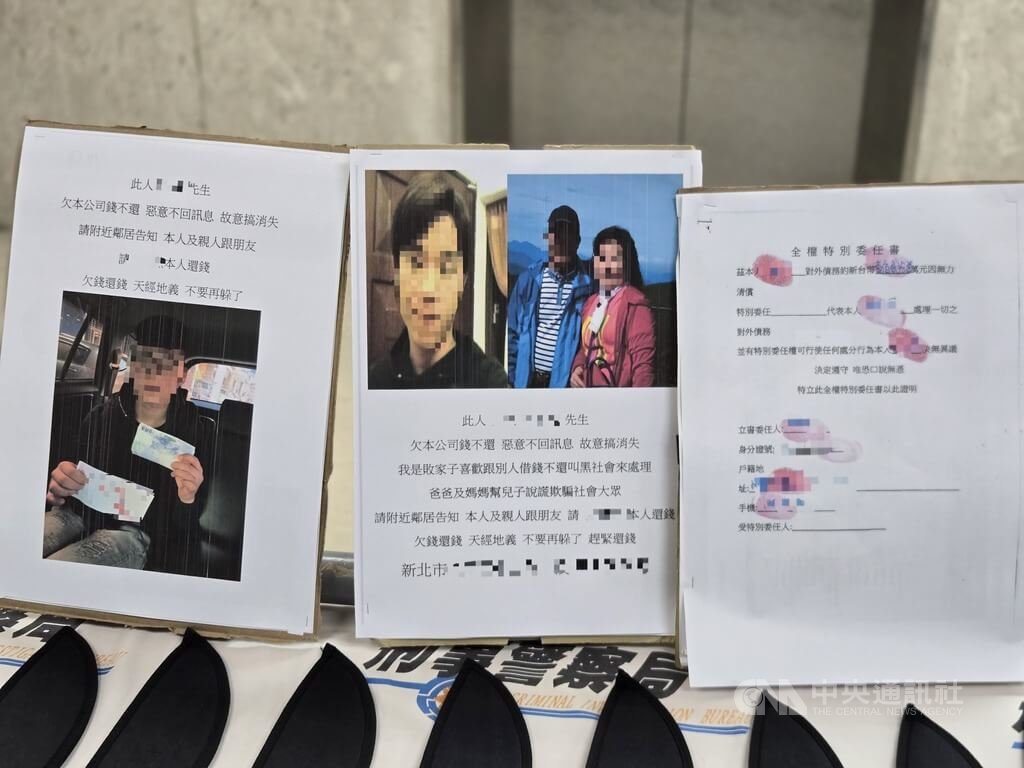 此人 先生
欠本公司錢不還 惡意不回訊息 故意搞消失
請附近鄰居告知 本人及親人跟朋友
請 本人還錢
欠錢還錢 天經地義 不要再躲了
此人 先生
欠本公司錢不還 惡意不回訊息 故意搞消失
我是敗家子喜歡跟別人借錢不還叫黑社會來處理
爸爸及媽媽幫兒子說謊欺騙社會大眾
請附近鄰居告知 本人及親人跟朋友 請 本人還錢
欠錢還錢 天經地義 不要再躲了 趕緊還錢
新北市
全權特別委任書
茲本人 對外債務約新台幣 萬元因無力
清償
特別委任 代表本人 處理一切之
對外債務
並有特別委任權可行使任何處分行為本人 決無異議
決定遵守 唯恐口說無憑
特立此全權特別委任書以此證明
立書委任人:
身分證號:
戶籍地
址:
手機:
受特別委任人:
刑事警察局
CRIMINAL
BUREAU
CNA 中央通訊社
THE CENTRAL NEWS AGENCY